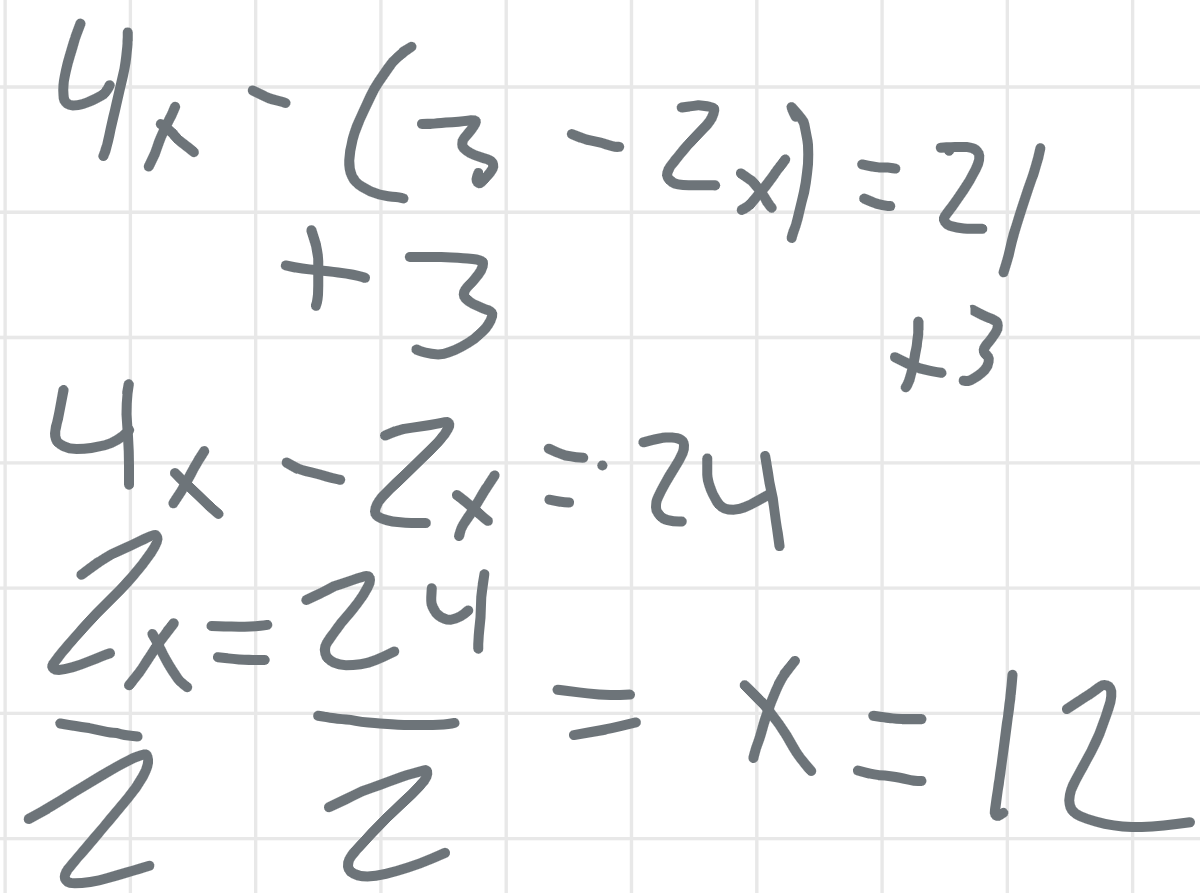 4x - (3 - 2x) = 21
+ 3 +3
4x - 2x = 24
2x = 24
2 2 = x = 12